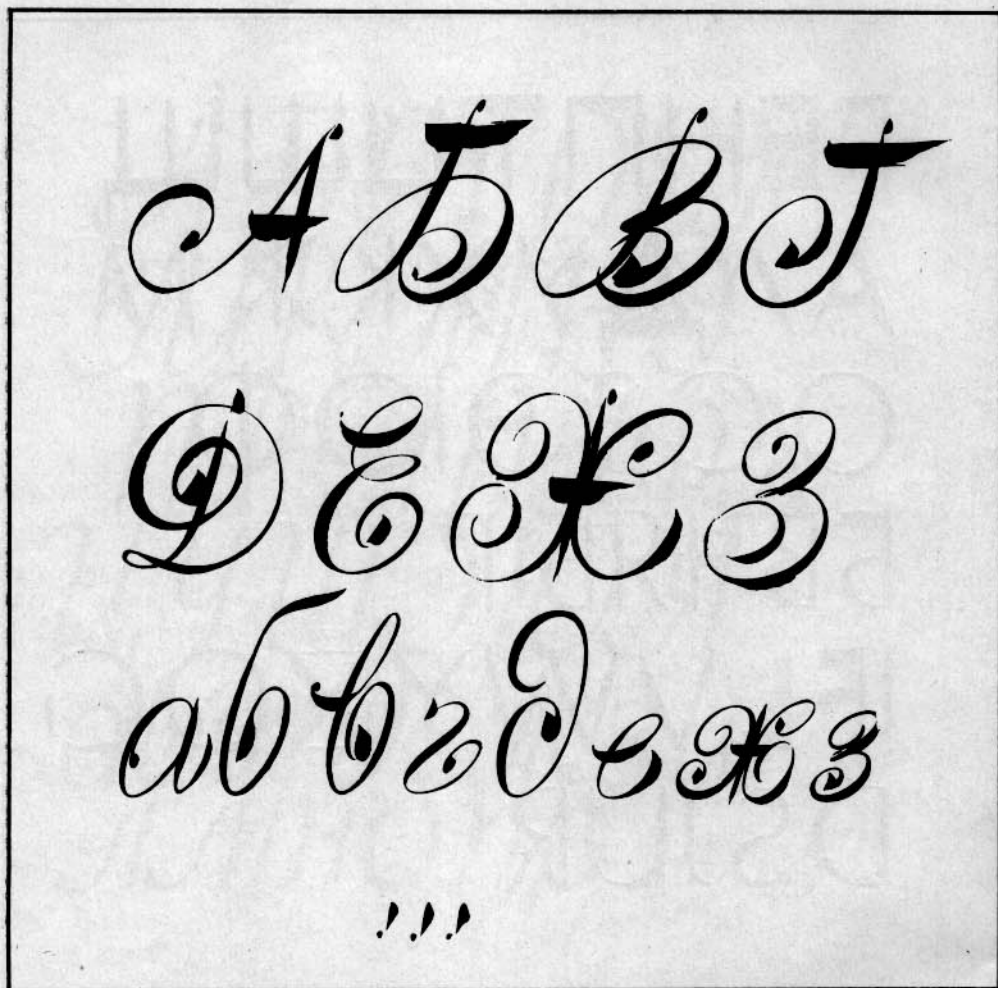 АБВГ
ДЕЖЗ
абвгдежз
!!!